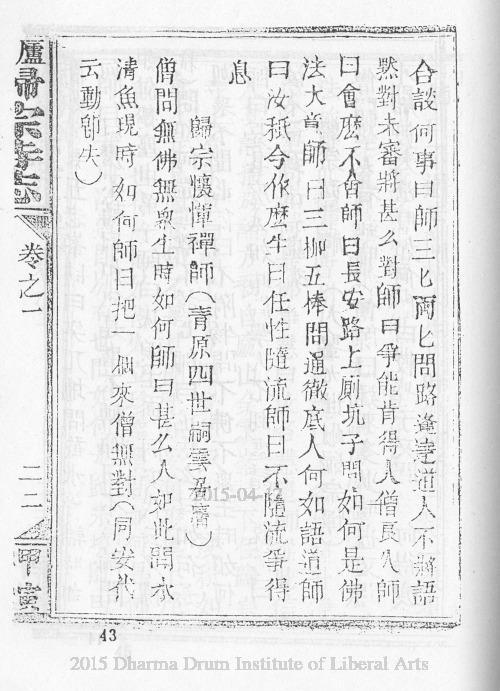 合談何事曰師三匕兩匕問路逢達道人不將語
默對未審將甚么對師曰爭能肯得人僧良久師
曰會麽不會師曰長安路上厠坑子問如何是佛
法大意師曰三枷五棒問通徹底人何如語道師
曰汝秪今作麽生曰任性隨流師曰不隨流爭得
息
歸宗懷惲禪師(青原四世嗣雲居膺)
僧問無佛無衆生時如何師曰甚么人如此問水
清魚現時如何師曰把一個來僧無對(同安代
云動卽失)
廬歸宗寺志 卷之一 二二
43
2015-04-
2015 Dharma Drum Institute of Liberal Arts